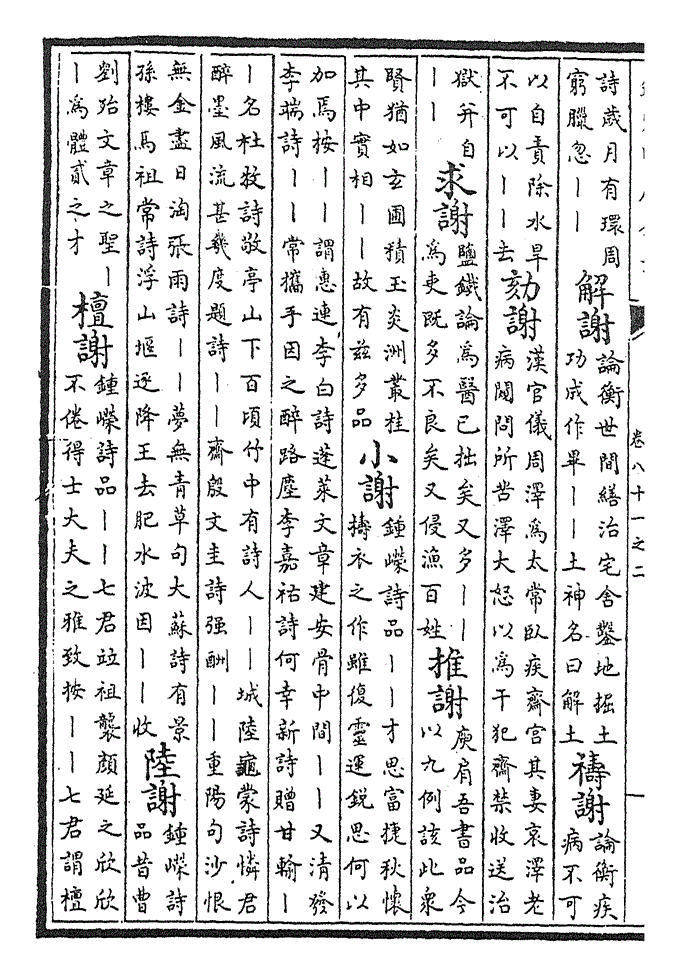 卷八十一之二
一
詩歲月有環周
窮臘忽丨丨
解謝
論衡世間繕治宅舍鑿地掘土
功成作畢丨丨土神名曰解土
禱謝
論衡疾
病不可
以自責除水旱
不可以丨丨去
劾謝
漢官儀周澤為太常臥疾齋宮其妻哀澤老
病闚問所苦澤大怒以為干犯齋禁收送治
獄并自
丨丨
求謝
鹽鐵論為醫已拙矣又多丨丨
為吏既多不良矣又侵漁百姓
推謝
庾肩吾書品今
以九例該此衆
賢猶如玄圃積玉炎洲叢桂
其中實相丨丨故有茲多品
小謝
鍾嶸詩品丨丨才思富捷秋懷
擣衣之作雖復靈運銳思何以
加焉按丨丨謂惠連李白詩蓬萊文章建安骨中間丨丨又清發
李端詩丨丨常攜手因之醉路塵李嘉祐詩何幸新詩贈甘輸丨
丨名杜牧詩敬亭山下百頃竹中有詩人丨丨城陸龜蒙詩憐君
醉墨風流甚幾度題詩丨丨齋殷文圭詩强酬丨丨重陽句沙恨
無金盡日淘張雨詩丨丨夢無青草句大蘇詩有景
孫樓馬祖常詩浮山堰逐降王去肥水波因丨丨收
陸謝
鍾嶸詩
品昔曹
劉殆文章之聖丨
丨為體貳之才
檀謝
鍾嶸詩品丨丨七君竝祖襲顏延之欣欣
不倦得士大夫之雅致按丨丨七君謂檀